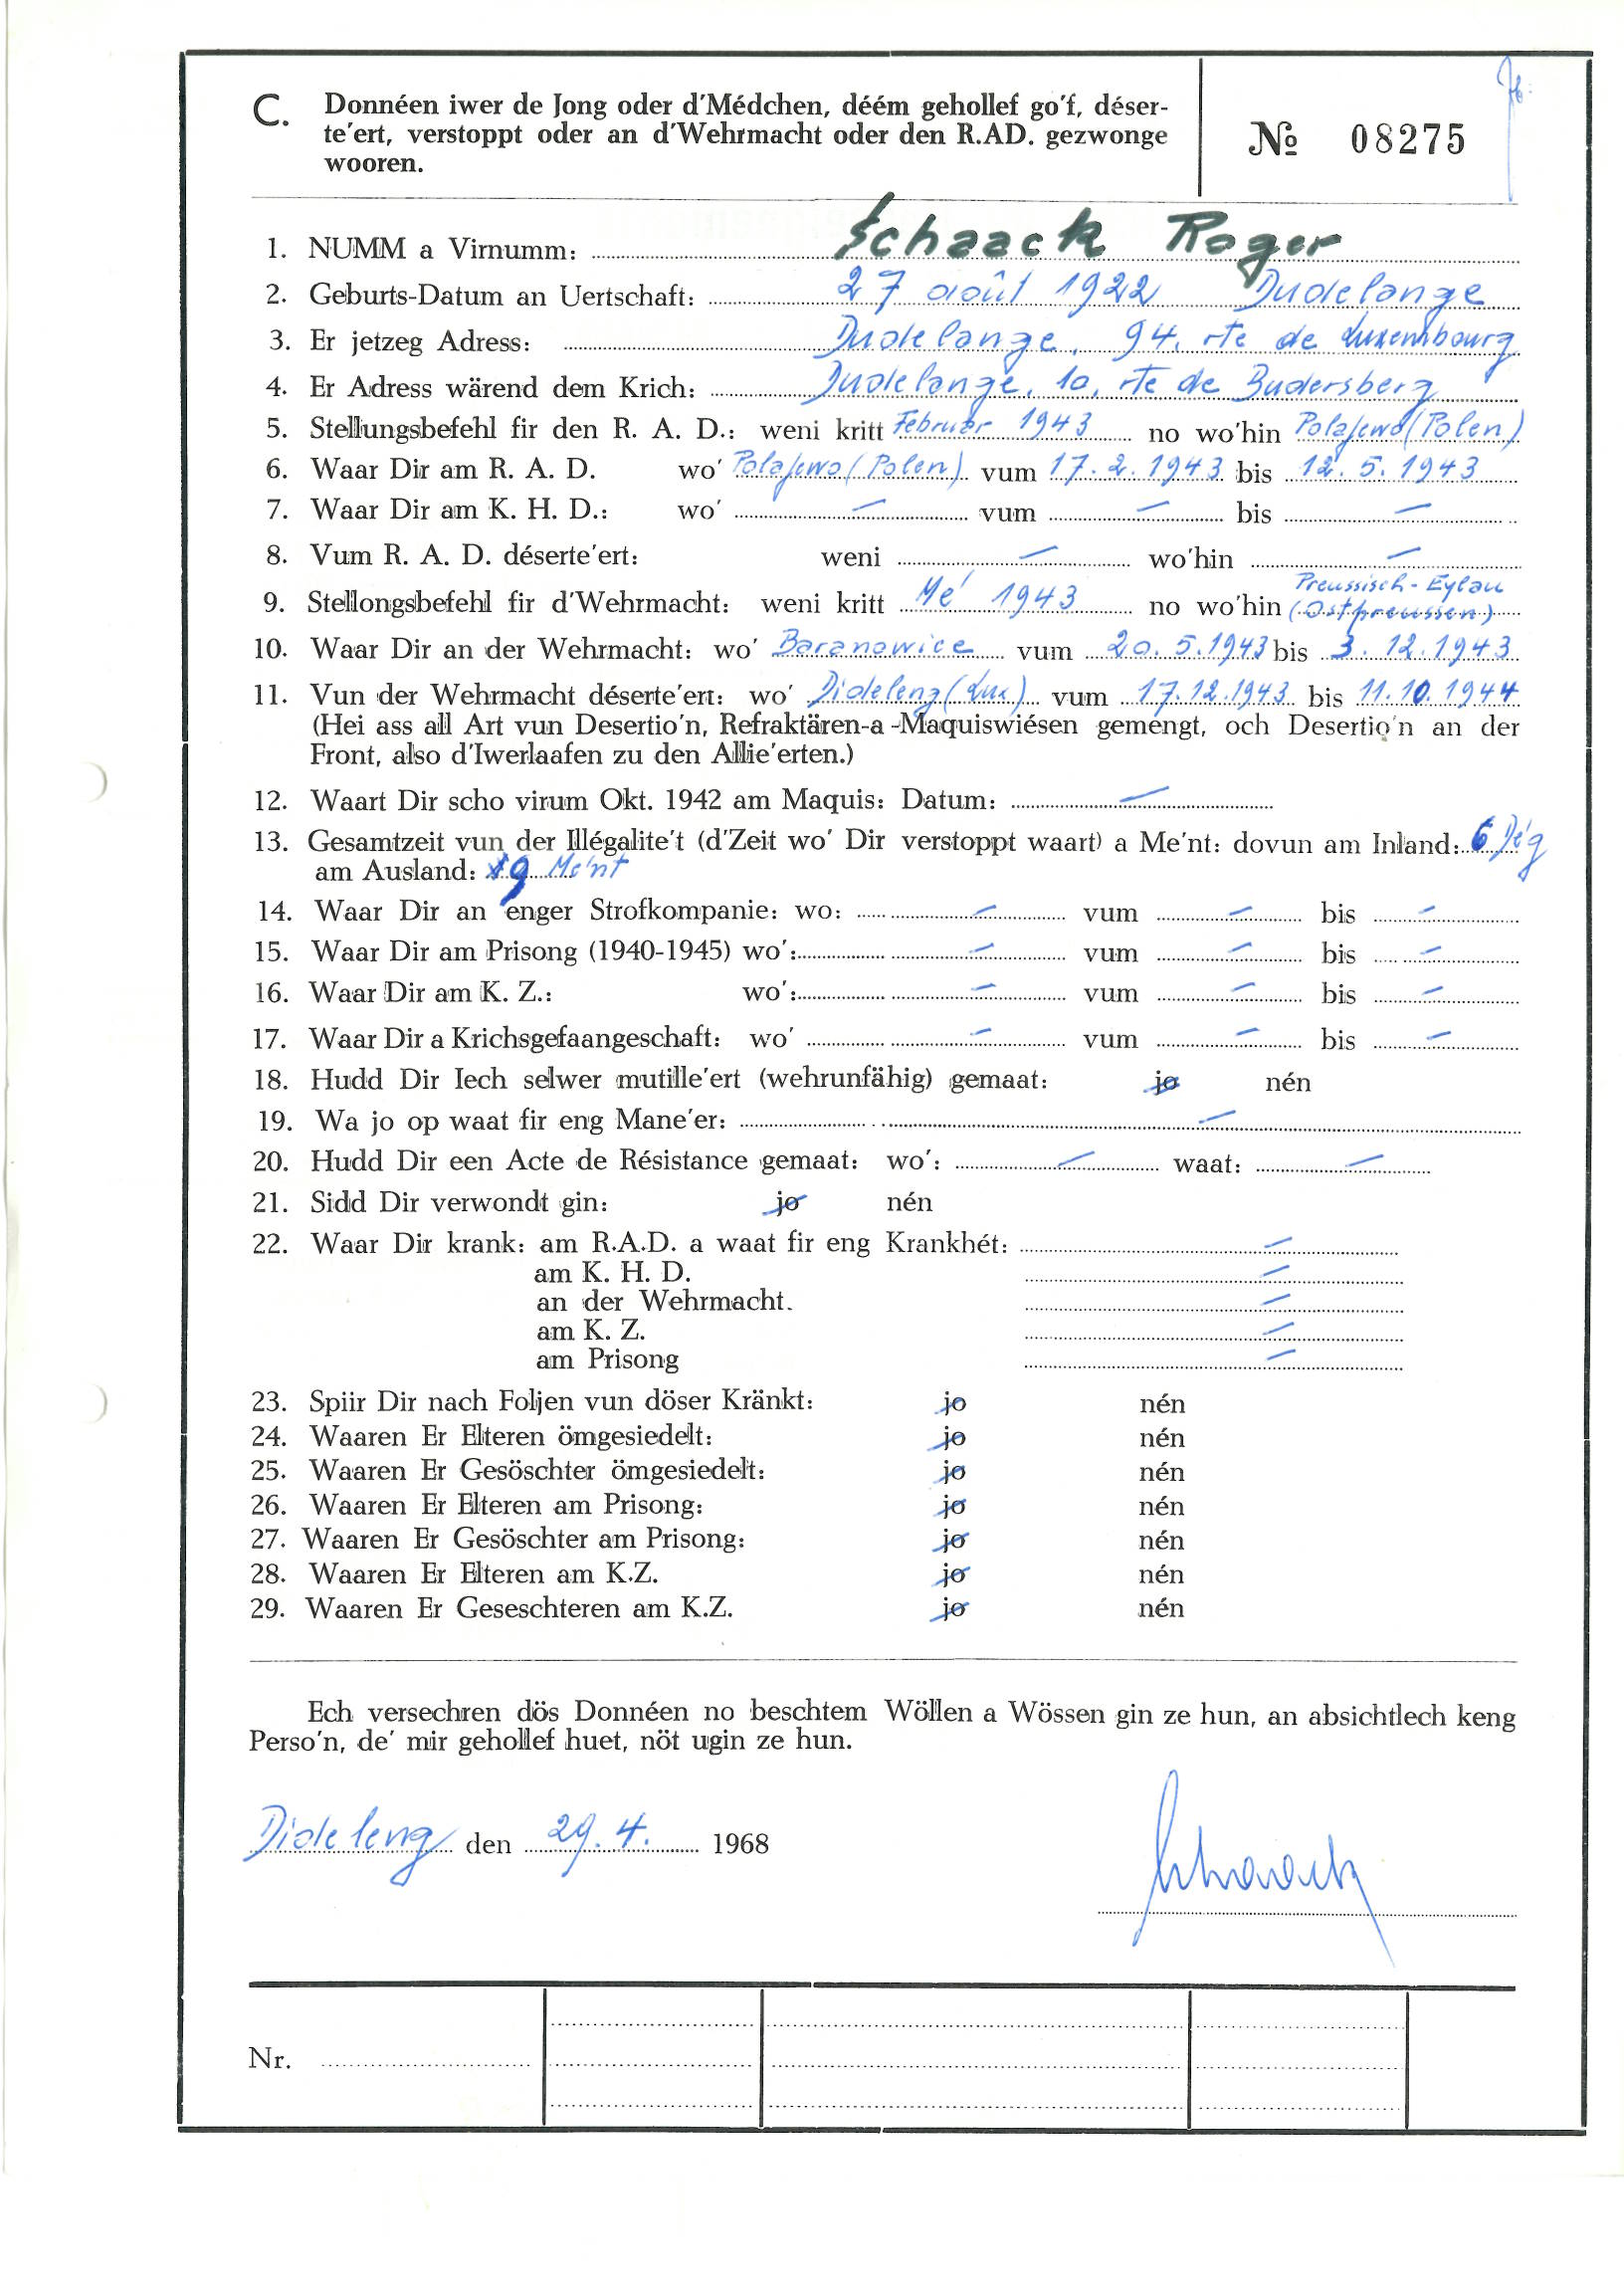 C. Donnéen iwer de Jong oder d'Médchen, déém gehollef go'f, déser-
te'ert, verstoppt oder an d'Wehrmacht oder den R.AD. gezwonge
wooren.
№ 08275
1. NUMM a Virnumm: Schaack Roger
2. Geburts-Datum an Uertschaft: 27 août 1922 Dudelange
3. Er jetzeg Adress: Dudelange, 94, rte de Luxembourg
4. Er Adress wärend dem Krich: Dudelange, 10, rte de Budersberg
5. Stellungsbefehl fir den R. A. D.: weni kritt Februar 1943 no wo'hin Polajewo (Polen)
6. Waar Dir am R. A. D. wo' Polajewo (Polen) vum 17.2.1943 bis 12.5.1943
7. Waar Dir am K. H. D.: wo' — vum — bis —
8. Vum R. A. D. déserte'ert: weni — wo'hin —
9. Stellongsbefehl fir d'Wehrmacht: weni kritt Mé 1943 no wo'hin Preussisch-Eylau (Ostpreussen)
10. Waar Dir an der Wehrmacht: wo' Baranowice vum 20.5.1943 bis 3.12.1943
11. Vun der Wehrmacht déserte'ert: wo' Dideleng (Lux) vum 17.12.1943 bis 11.10.1944
(Hei ass all Art vun Desertio'n, Refraktären-a-Maquiswiésen gemengt, och Desertio'n an der
Front, also d'Iwerlaafen zu den Allie'erten.)
12. Waart Dir scho virum Okt. 1942 am Maquis: Datum: —
13. Gesamtzeit vun der Illégalite't (d'Zeit wo' Dir verstoppt waart) a Me'nt: dovun am Inland: 6 Dé'g
am Ausland: 9 Me'nt
14. Waar Dir an enger Strofkompanie: wo: — vum — bis —
15. Waar Dir am Prisong (1940-1945) wo': — vum — bis —
16. Waar Dir am K. Z.: wo': — vum — bis —
17. Waar Dir a Krichsgefaangeschaft: wo' — vum — bis —
18. Hudd Dir Iech selwer mutille'ert (wehrunfähig) gemaat: jo nén
19. Wa jo op waat fir eng Mane'er: —
20. Hudd Dir een Acte de Résistance gemaat: wo': — waat: —
21. Sidd Dir verwondt gin: jo nén
22. Waar Dir krank: am R.A.D. a waat fir eng Krankhét: —
am K. H. D. —
an der Wehrmacht. —
am K. Z. —
am Prisong —
23. Spiir Dir nach Foljen vun döser Kränkt: jo nén
24. Waaren Er Elteren ömgesiedelt: jo nén
25. Waaren Er Gesöschter ömgesiedelt: jo nén
26. Waaren Er Elteren am Prisong: jo nén
27. Waaren Er Gesöschter am Prisong: jo nén
28. Waaren Er Elteren am K.Z. jo nén
29. Waaren Er Geseschteren am K.Z. jo nén
Ech versechren dös Donnéen no beschtem Wöllen a Wössen gin ze hun, an absichtlech keng
Perso'n, de' mir gehollef huet, nöt ugin ze hun.
Dideleng den 29.4. 1968
Schaack
Nr.